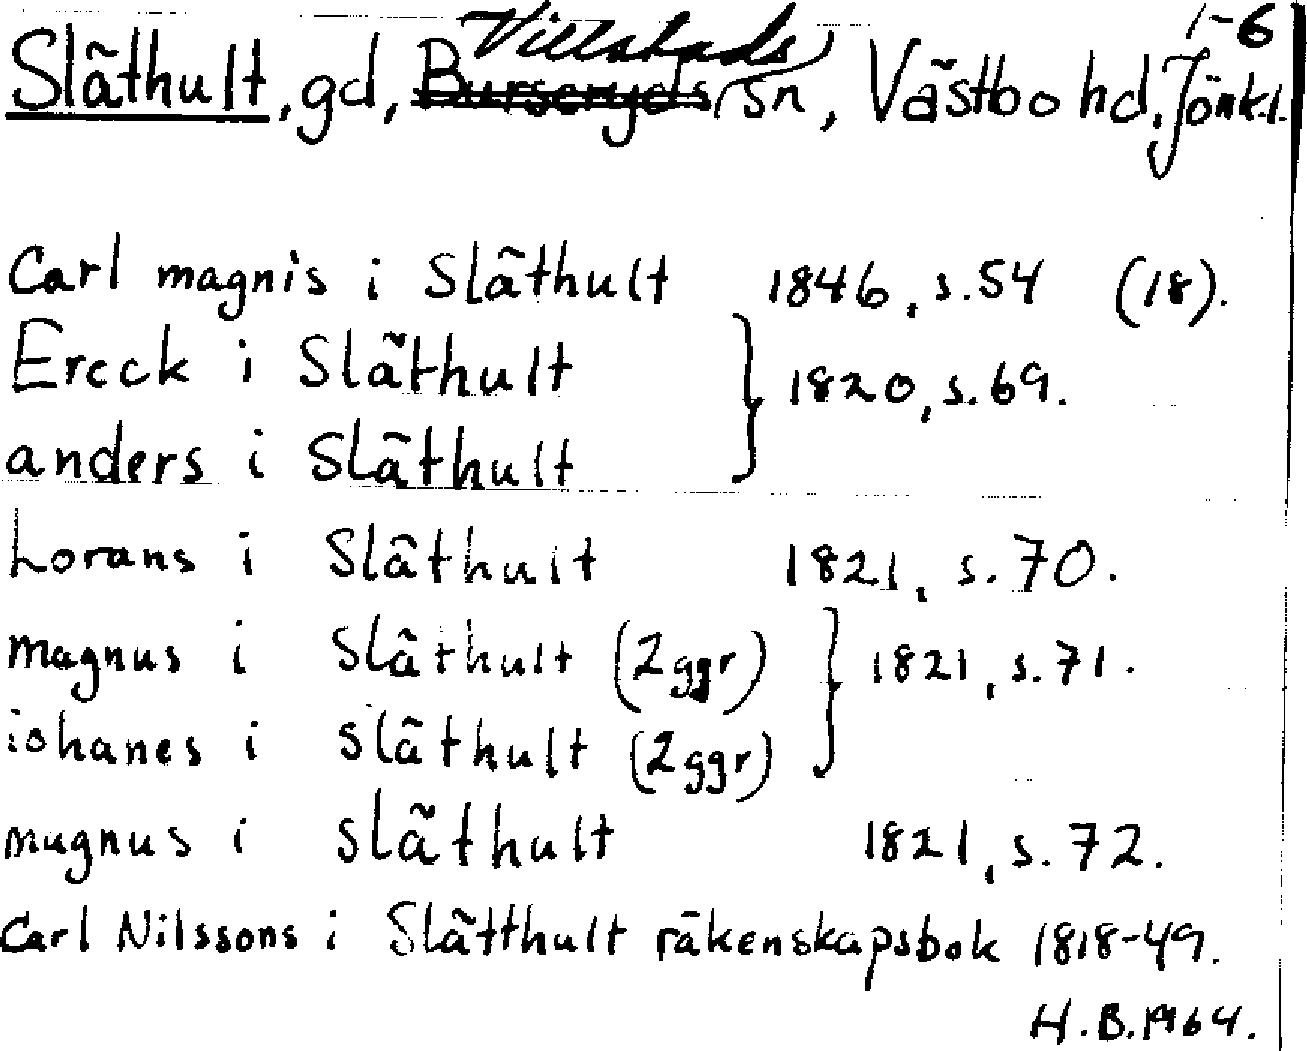 1-6
Villstads
Släthult, gd, Burseryds sn, Västbo hd. Jönk.l.
Carl magnis i Släthult 1846, s.54 (18).
Ereck i Släthult } 1820, s.69.
anders i Släthult
Lorans i Släthult 1821, s.70.
magnus i Släthult (2ggr) } 1821, s.71.
iohanes i släthult (2ggr)
mugnus i släthult 1821, s.72.
Carl Nilssons i Slätthult räkenskapsbok 1818-49.
H.B.1964.